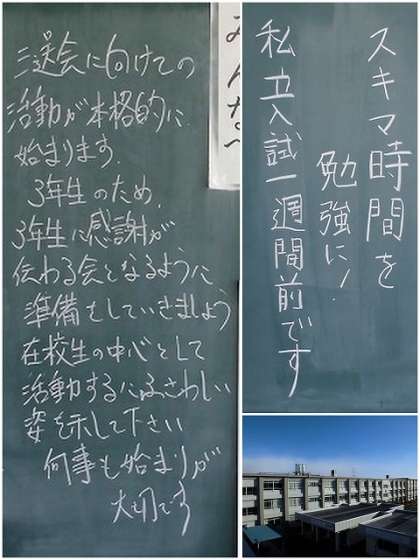 三送会に向けての
活動が本格的に
始まります.
3年生のため,
3年生に感謝が
伝わる会となるように
準備をしていきましょう
在校生の中心として
活動するにふさわしい
姿を示して下さい
何事も始まりが
大切です
みんなへ
スキマ時間を
勉強に!
私立入試一週間前です